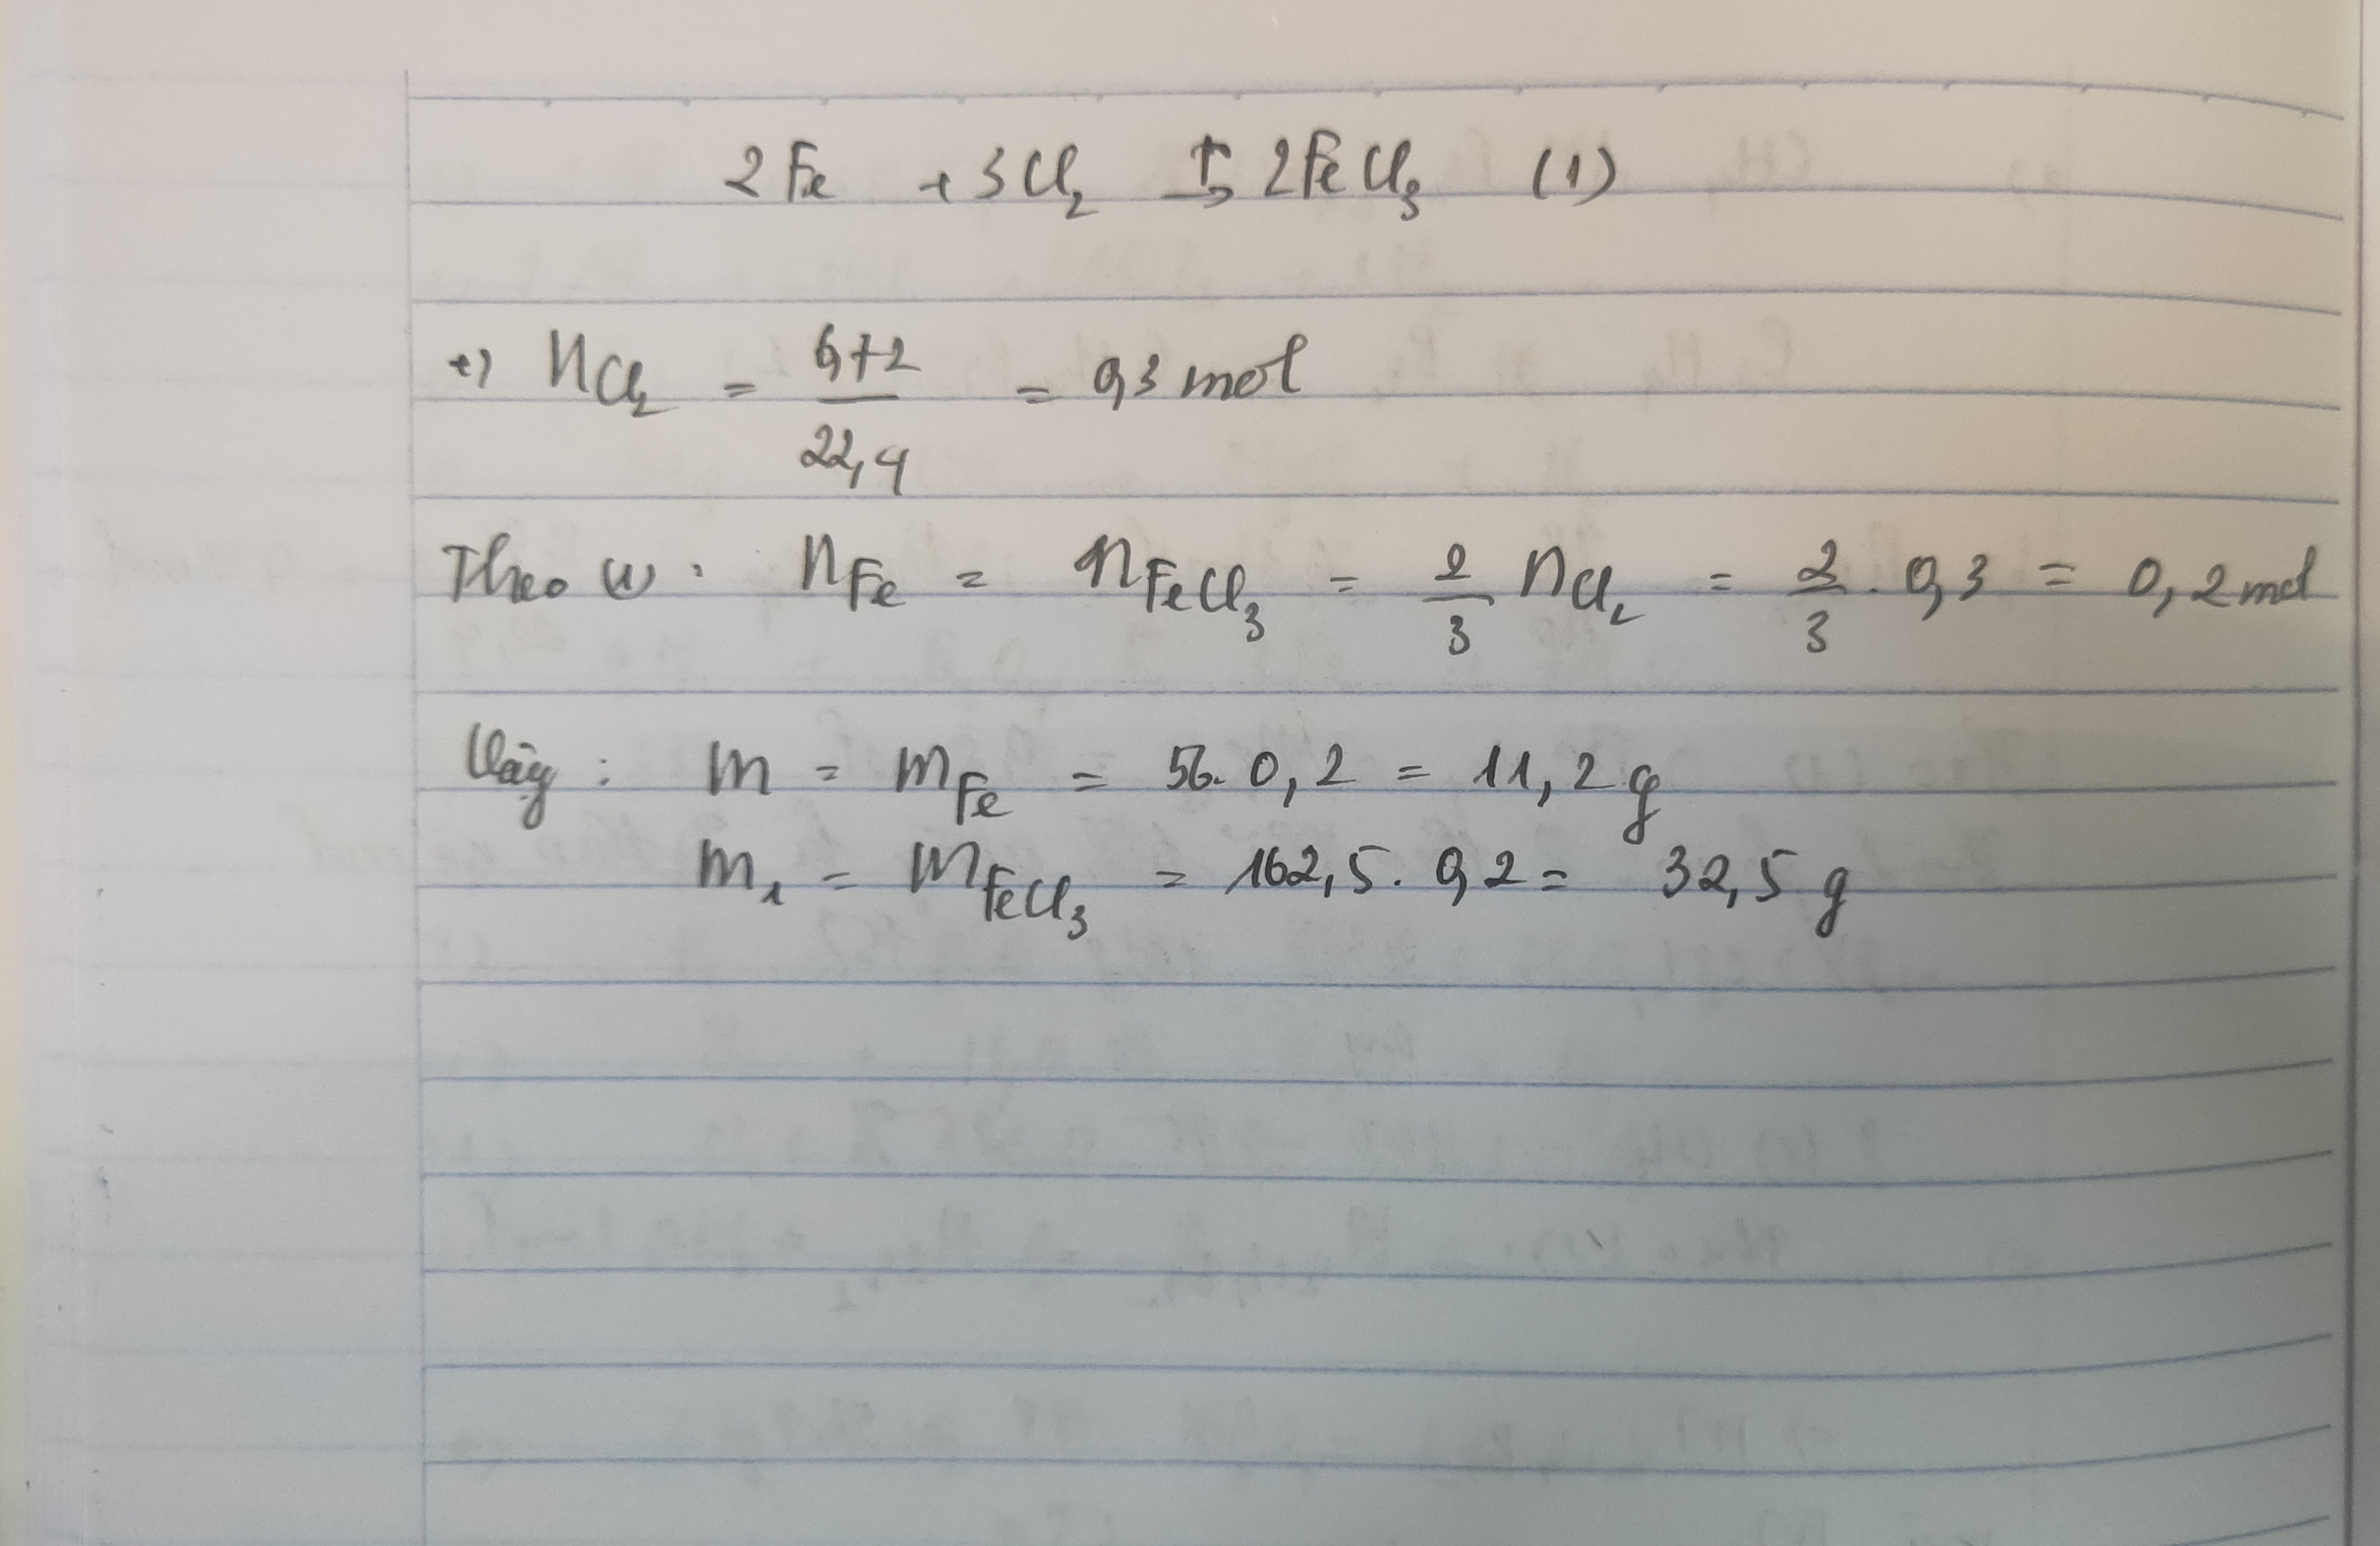 2Fe + 3Cl₂ → 2FeCl₃ (1)
+) nCl₂ = 6,72 / 22,4 = 0,3 mol
Theo (1): nFe = nFeCl₃ = 2/3 nCl₂ = 2/3 . 0,3 = 0,2 mol
Vậy: m = mFe = 56. 0,2 = 11,2 g
m₁ = mFeCl₃ = 162,5. 0,2 = 32,5 g